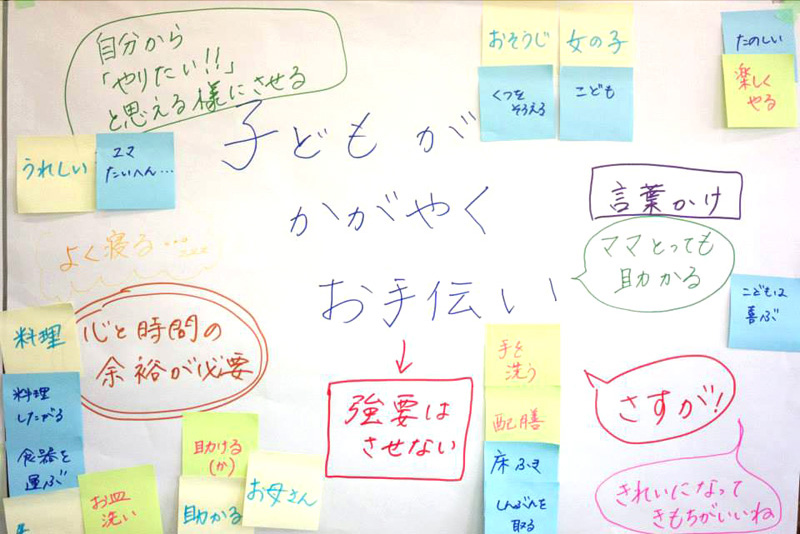 自分から
「やりたい!!」
と思える様にさせる
おそうじ
女の子
たのしい
くつを
そろえる
こども
楽しく
やる
うれしい
ママ
たいへん…
子どもが
かがやく
お手伝い
言葉かけ
ママとっても
助かる
よく寝る…zzz
こどもは
喜ぶ
心と時間の
余裕が必要
料理
料理
したがる
食器を
運ぶ
強要は
させない
手を
洗う
配膳
床ふき
しんぶんを
取る
さすが!
助ける
(か)
お皿
洗い
助かる
お母さん
きれいになって
きもちがいいね